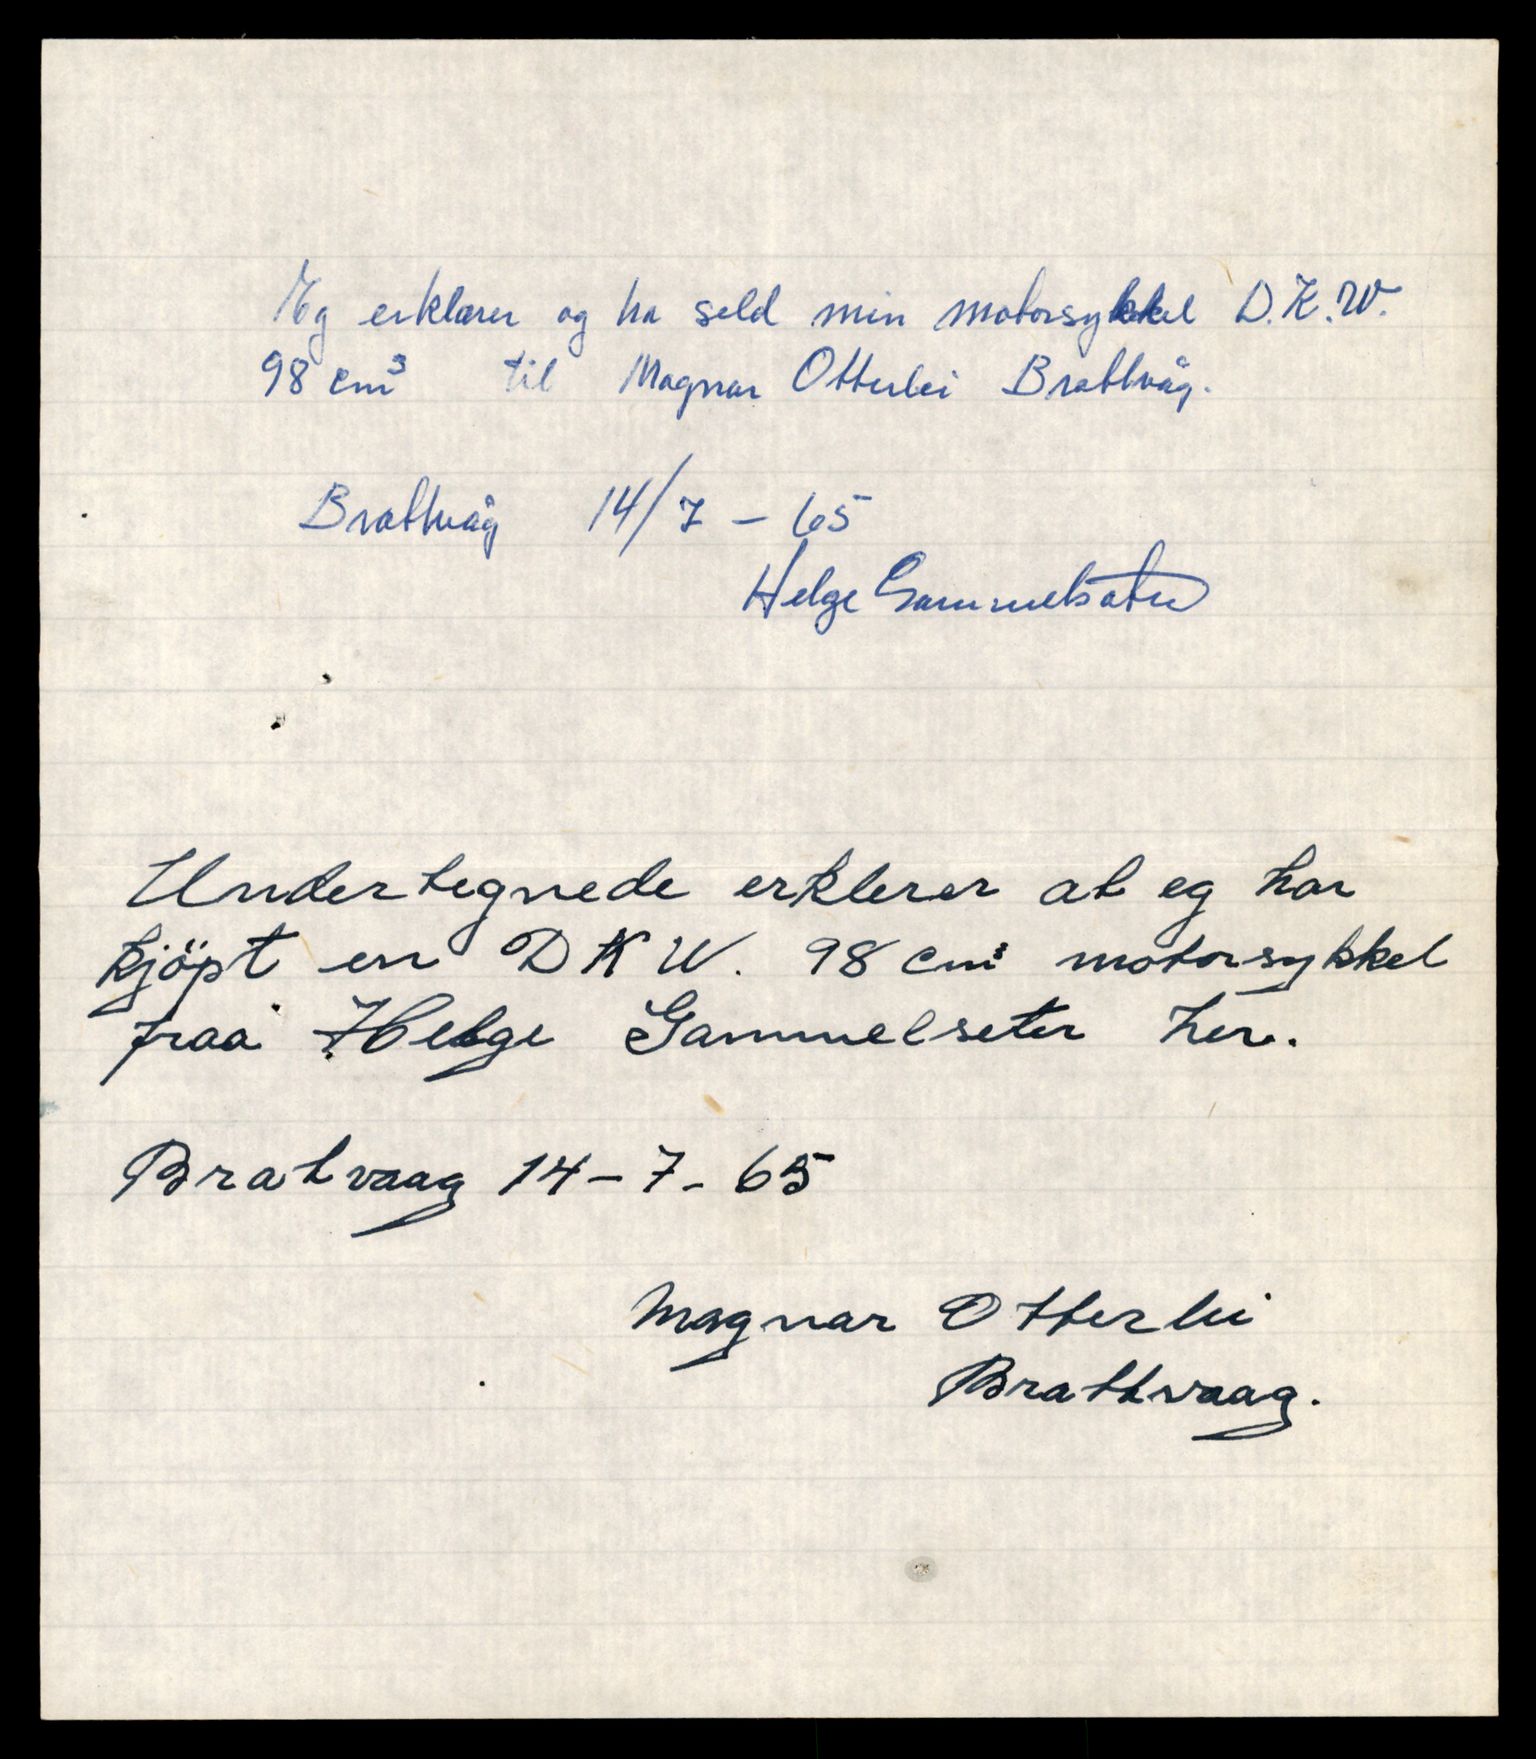 Eg erklærer og ha seld min motorsykkel D.K.W.
98 cm³ til Magnar Otterlei Brattvåg.
Brattvåg 14/7 - 65
Helge Gammelsæter
Undertegnede erklerer at eg har
kjöpt en DKW. 98 cm³ motorsykkel
fraa Helge Gammelseter her.
Bratvaag 14-7-65
Magnar Otterlei
Brattvaag.